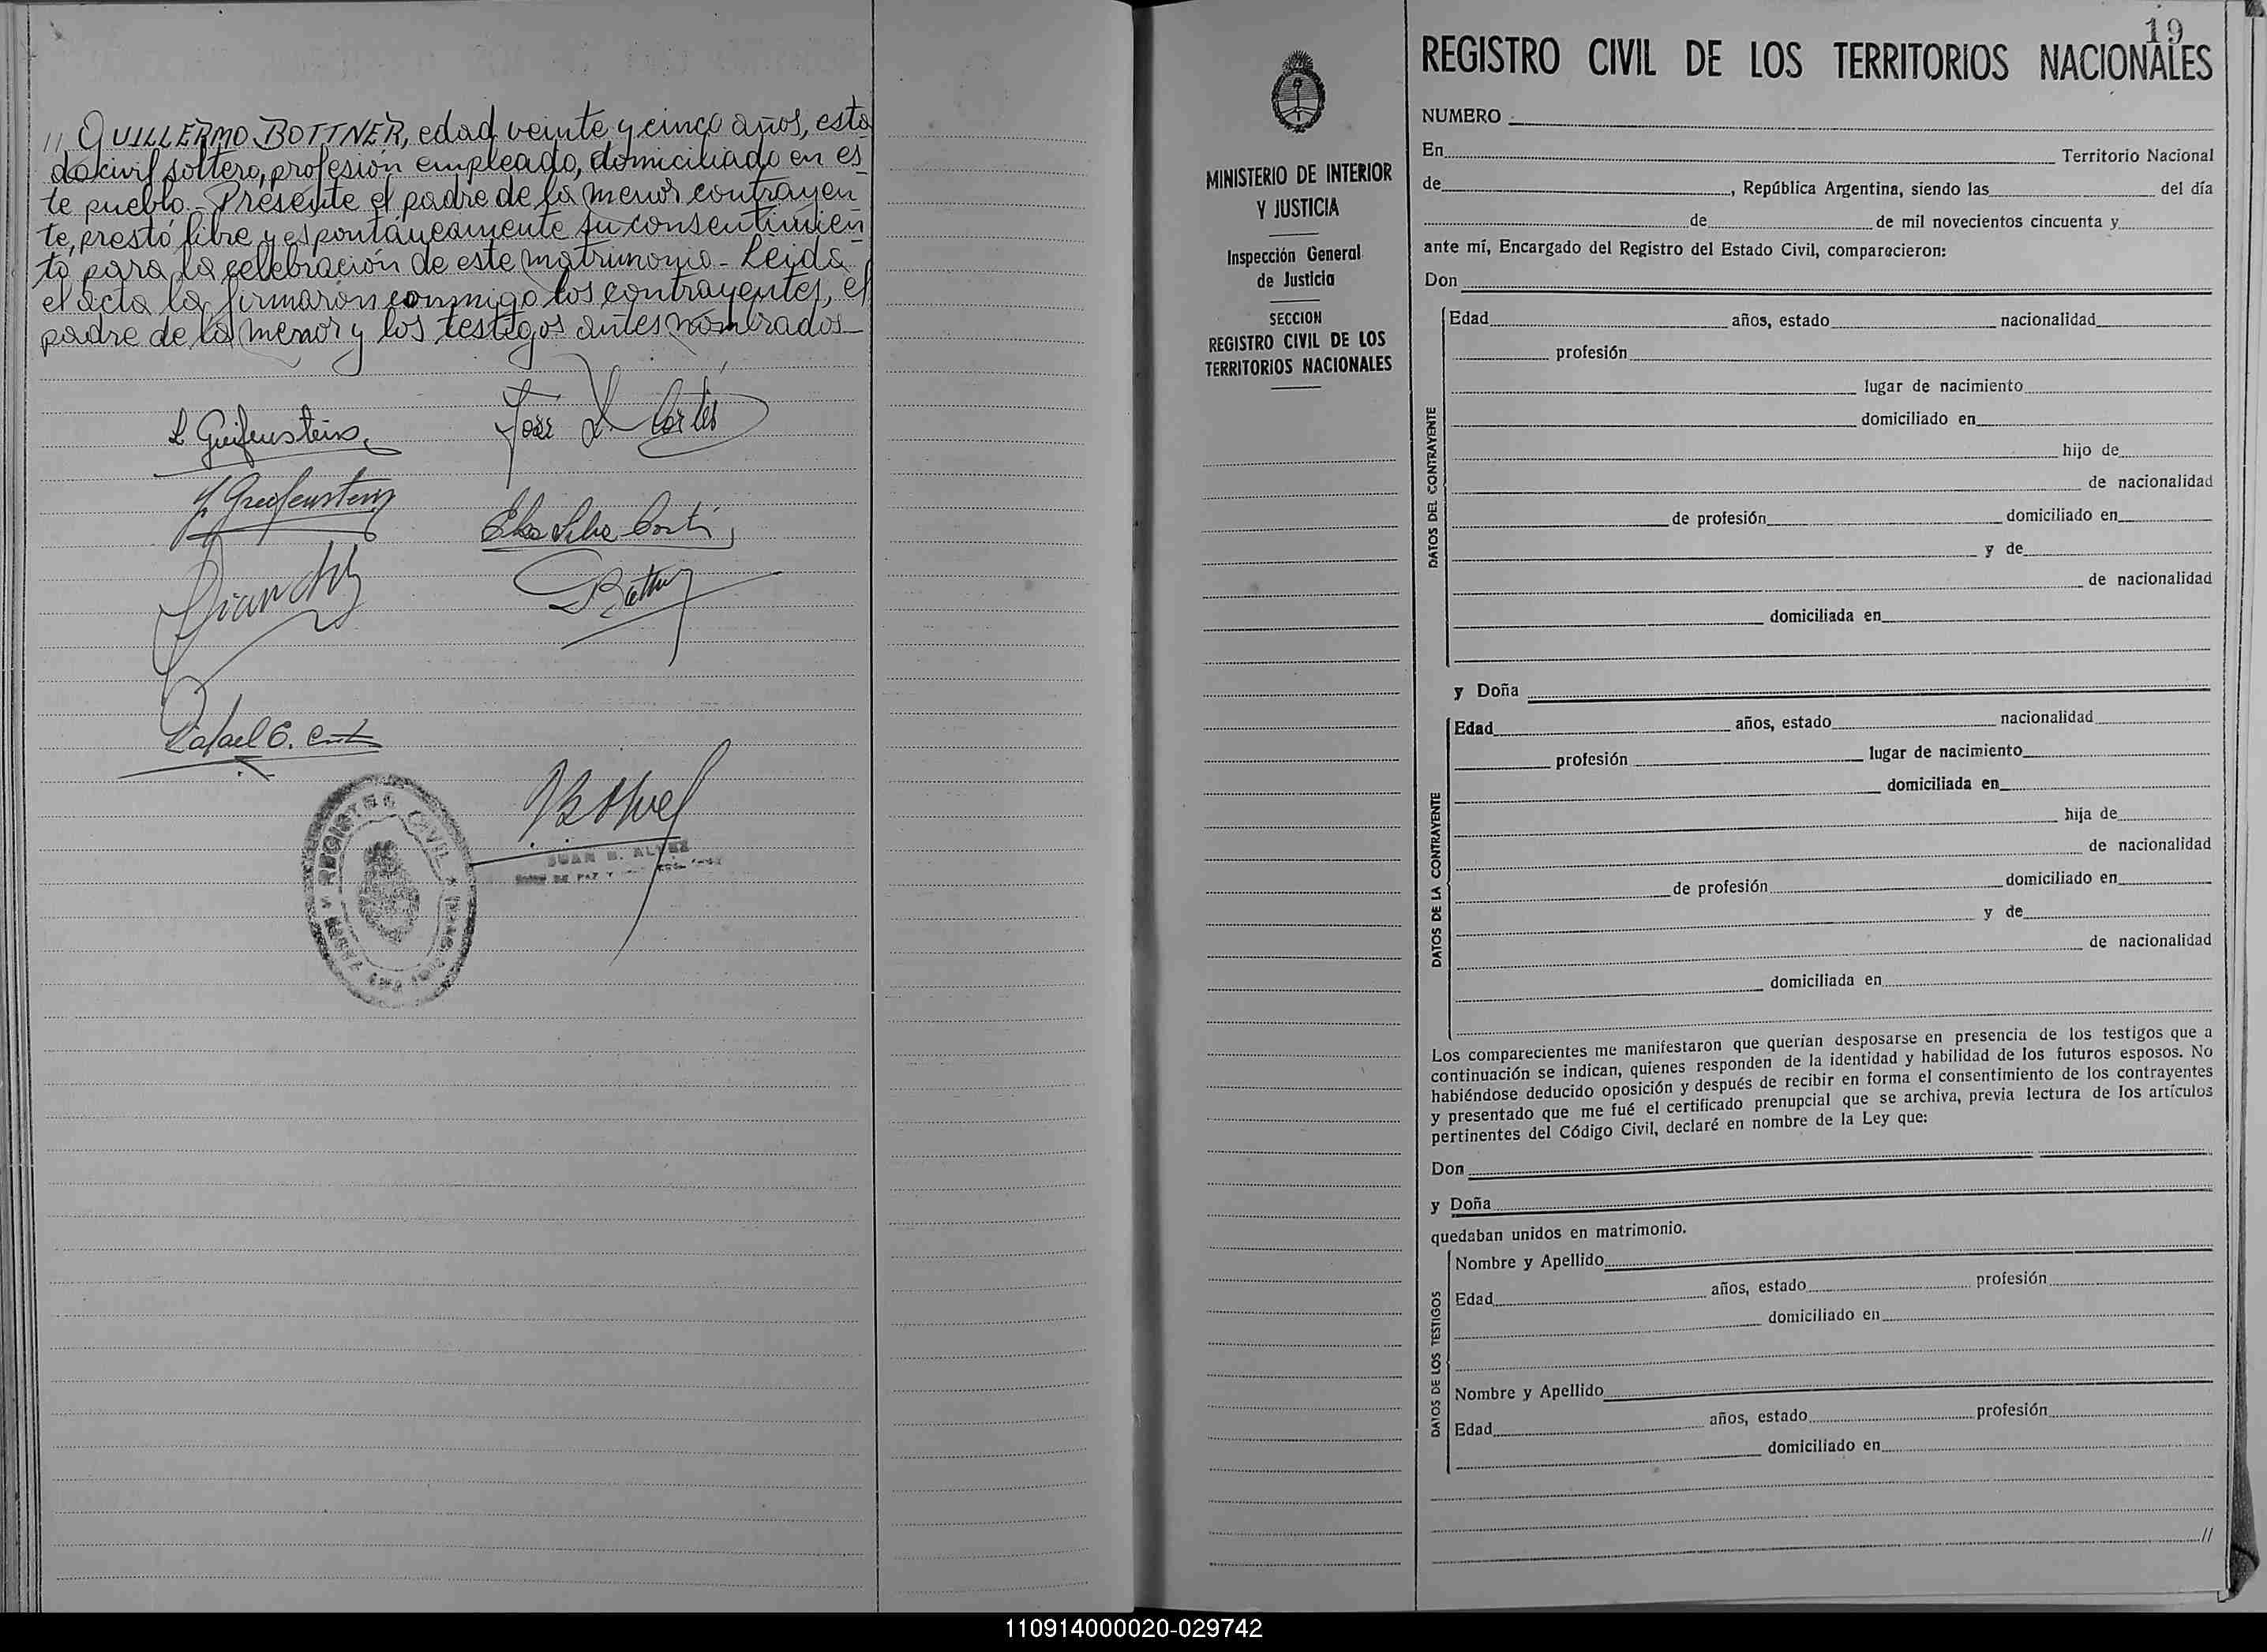 // GUILLERMO BOTTNER, edad veinte y cinco años, esta
do civil soltero, profesión empleado, domiciliado en es
te pueblo.- Presente el padre de la menor contrayen
te, prestó libre y espontáneamente su consentimien
to para la celebración de este matrimonio- Leida
el acta la firmaron conmigo los contrayentes, el
padre de la menor y los testigos antes nombrados-
L Greifenstein
José L. Cortés
Greifenstein
Elsa Silva Cortés
Bianchi
Rafael E.
REGISTRO CIVIL
JUAN B.
DE PAZ Y
MINISTERIO DE INTERIOR
Y JUSTICIA
Inspección General
de Justicia
SECCION
REGISTRO CIVIL DE LOS
TERRITORIOS NACIONALES
19
REGISTRO CIVIL DE LOS TERRITORIOS NACIONALES
NUMERO
En Territorio Nacional
de , República Argentina, siendo las del día
de de mil novecientos cincuenta y
ante mí, Encargado del Registro del Estado Civil, comparecieron:
Don
DATOS DEL CONTRAYENTE
Edad años, estado nacionalidad
profesión
lugar de nacimiento
domiciliado en
hijo de
de nacionalidad
de profesión domiciliado en
y de
de nacionalidad
domiciliada en
y Doña
DATOS DE LA CONTRAYENTE
Edad años, estado nacionalidad
profesión lugar de nacimiento
domiciliada en
hija de
de nacionalidad
de profesión domiciliado en
y de
de nacionalidad
domiciliada en
Los comparecientes me manifestaron que querían desposarse en presencia de los testigos que a
continuación se indican, quienes responden de la identidad y habilidad de los futuros esposos. No
habiéndose deducido oposición y después de recibir en forma el consentimiento de los contrayentes
y presentado que me fué el certificado prenupcial que se archiva, previa lectura de los artículos
pertinentes del Código Civil, declaré en nombre de la Ley que:
Don
y Doña
quedaban unidos en matrimonio.
DATOS DE LOS TESTIGOS
Nombre y Apellido
Edad años, estado profesión
domiciliado en
Nombre y Apellido
Edad años, estado profesión
domiciliado en
//
110914000020-029742